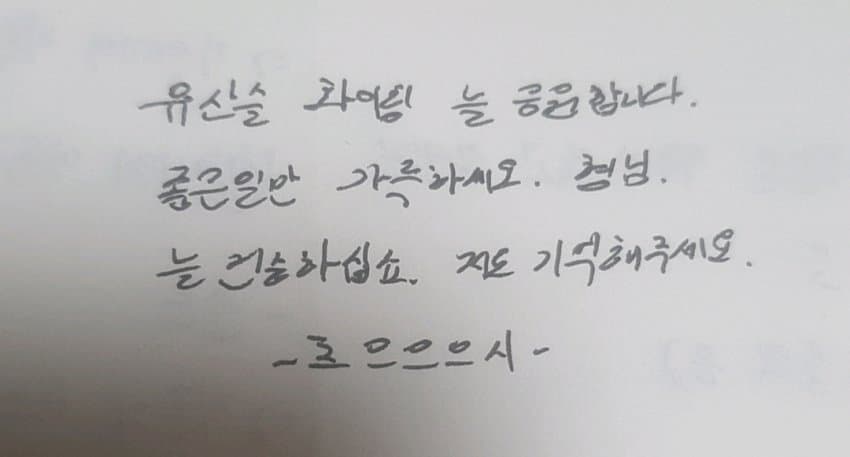 유산슬 화이팅 늘 응원합니다.
좋은일만 가득하세요. 형님.
늘 건승하십쇼. 저도 기억해주세요.